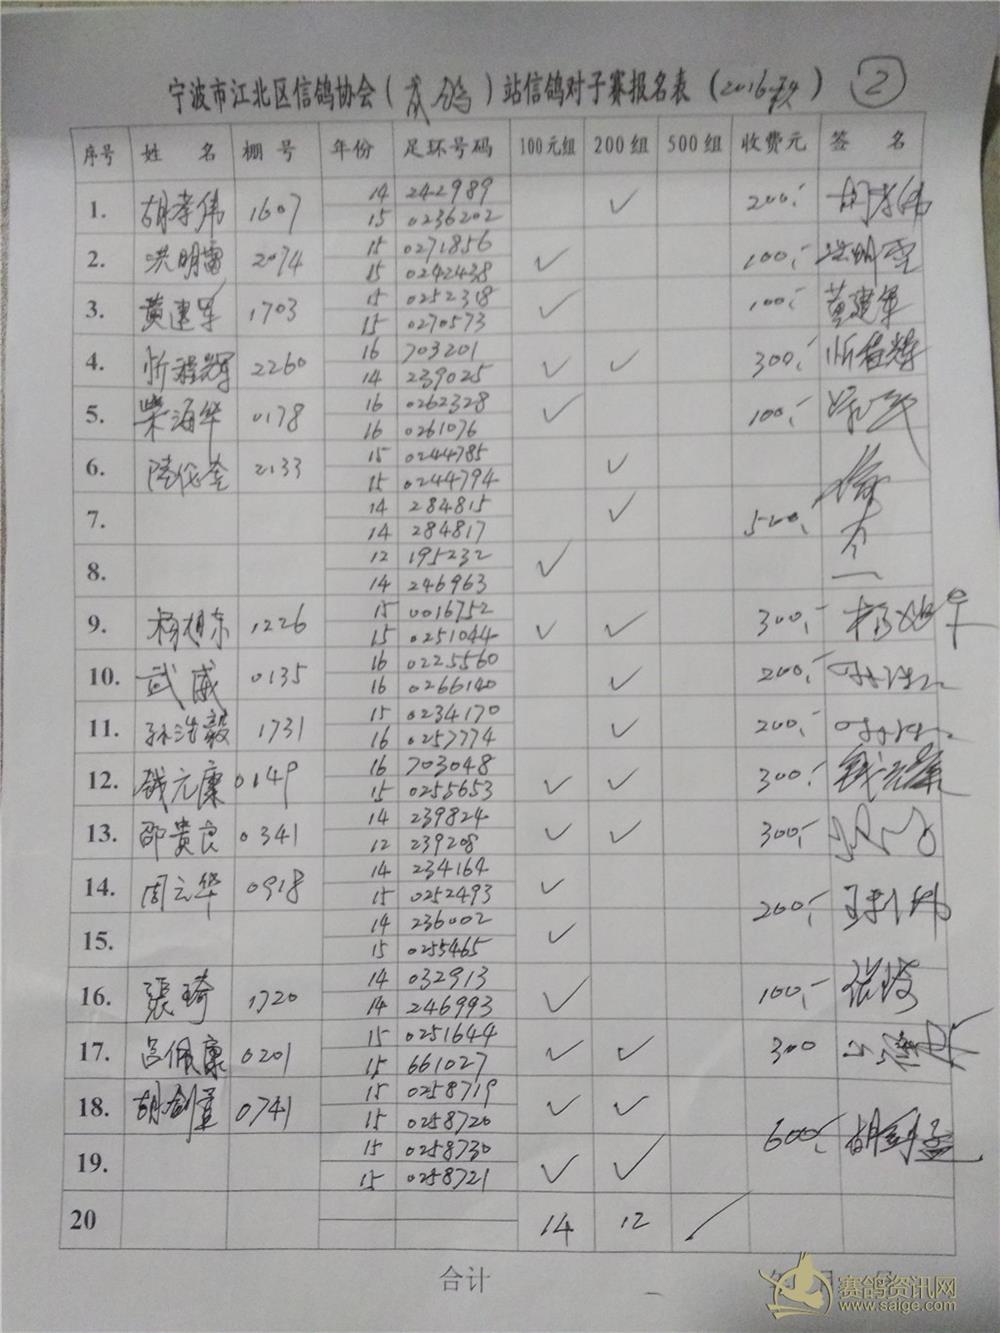 宁波市江北区信鸽协会（成鸽）站信鸽对子赛报名表（2016秋） 2
序号 姓 名 棚号 年份 足环号码 100元组 200组 500组 收费元 签 名
1. 胡孝伟 1607 14 242989 ✓ 200,- 胡孝伟
15 0236202
2. 洪明雷 2074 15 0271856 ✓ 100,- 洪明雷
15 0242438
3. 黄建军 1703 15 0252318 ✓ 100,- 黄建军
15 0270573
4. 忻程辉 2260 16 703201 ✓ ✓ 300,- 忻程辉
14 239025
5. 柴海华 0178 16 0262328 ✓ 100,-
16 0261076
6. 2133 15 0244785 ✓
15 0244794
7. 14 284815 ✓ 500,
14 284817
8. 12 195232 ✓
14 246963
9. 杨旭东 1226 15 0016752 ✓ ✓ 300,- 杨旭东
15 0251044
10. 武威 0135 16 0225560 ✓ 200,-
16 0266140
11. 孙浩毅 1731 15 0234170 ✓ 200,-
16 0257774
12. 钱元康 0149 16 703048 ✓ ✓ 300,- 钱元康
15 0255653
13. 邵贵良 0341 14 239824 ✓ ✓ 300,-
12 239208
14. 周云华 0918 14 234164 ✓ 200,-
15 0252493
15. 14 236002 ✓
15 0255465
16. 張琦 1720 14 032913 ✓ 100,-
14 246993
17. 吕佩康 0201 15 0251644 ✓ ✓ 300
15 661027
18. 胡剑孟 0741 15 0258719 ✓ ✓ 600,- 胡剑孟
15 0258720
19. 15 0258730 ✓ ✓
15 0258721
20 14 12 /
合计 年 月 号
赛鸽资讯网
www.saige.com